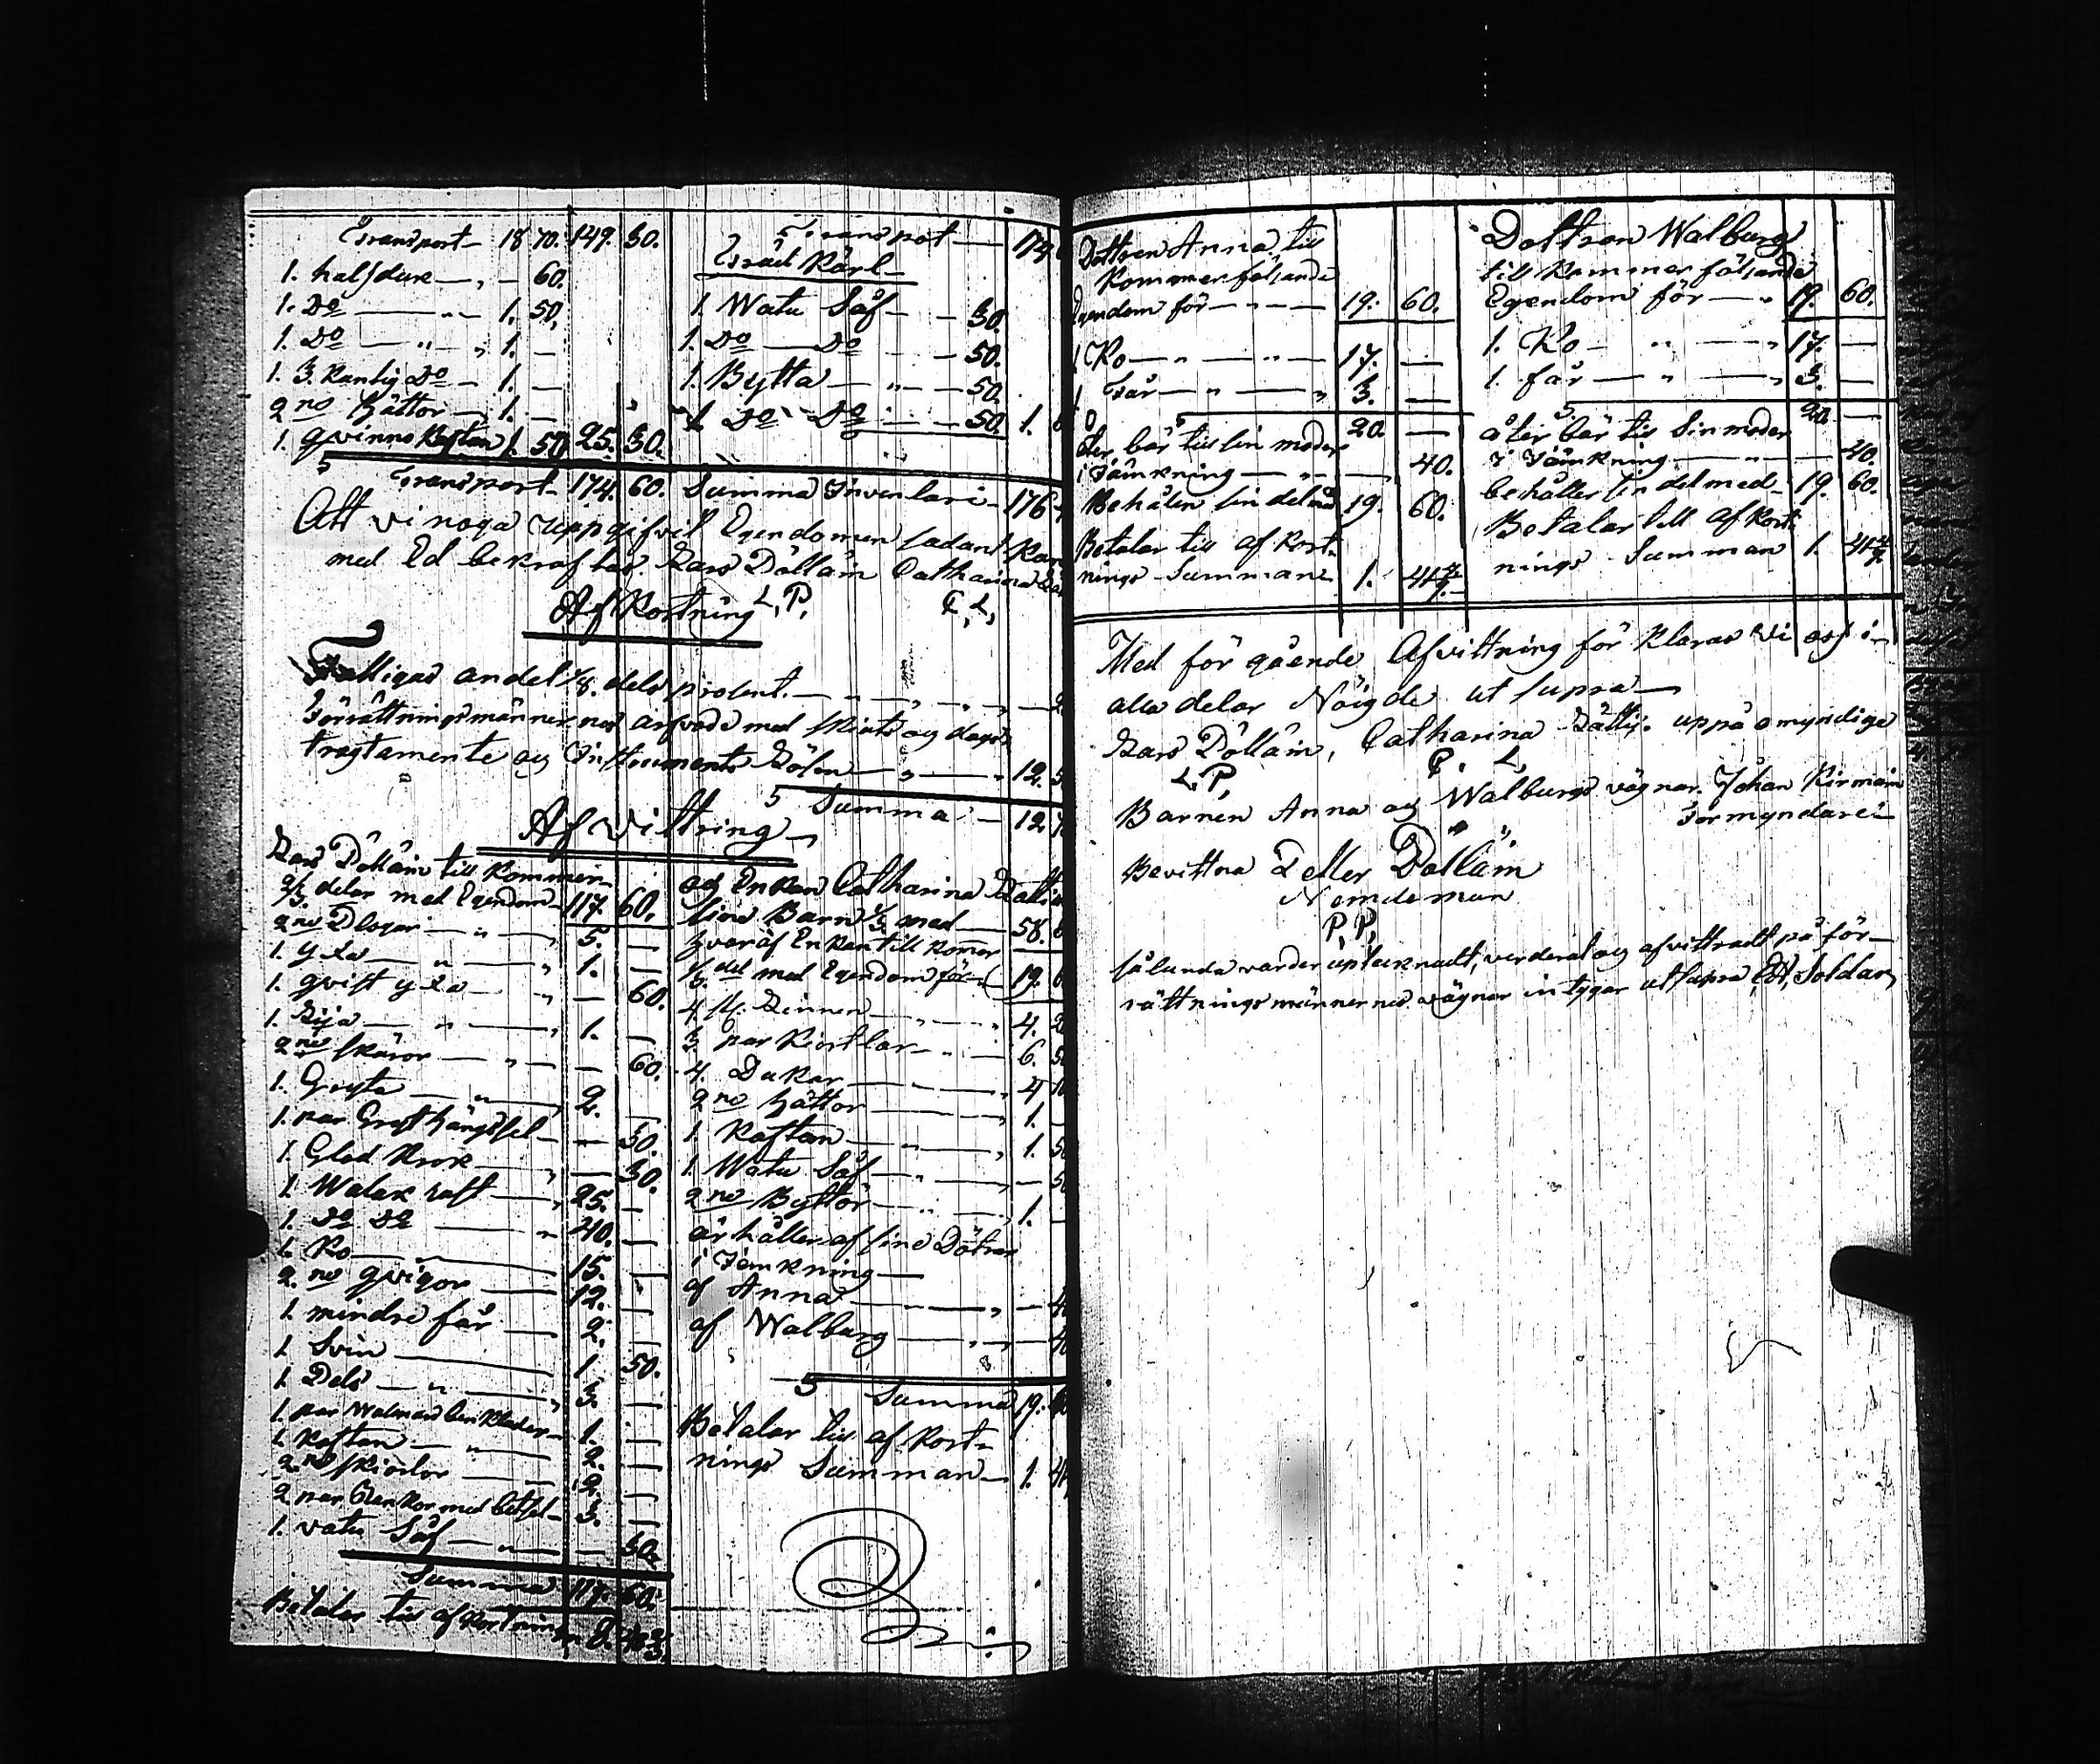 Transport 18 70. 149. 30.
1. halsduk 60.
1. Do 1. 50.
1. Do 1. —
1. 3. kantig Do 1. —
2ne hättor 1. —
1. qvinns kaftan 1. 50 25. 30.
Transport 174. 60.
Transpot 174
Träd Kärl
1 Watu Såf 30.
1. Do Do 50.
1. Bytta 50.
1 Do Do 50. 1.
Summa Inventari 176
Att vi noga uppgifvit Egendomen sadant kan
med Ed bekraftas. Lars Dållåin Catharina
L. P. C. L.
Af Kortning
Fattigas andel 1/8. dels prosent.
Förrättningsmännernas arfvode med skiuts og dags
tragtamente og Instruments Lösen 12.
Summa 12.
Af Vittring
Lars Dållåin till kommer
2/3. delar med Egendom 117. 60.
2ne Plogar 5. —
1. yxa 1. —
1. qvist yxa — 60.
1. Lija 1. —
2ne skäror — 60.
1. Gryta 2. —
1. par Grythängssel — 50.
1. Glod Krok — 30.
1. Walak hast 25. —
1. Do Do 40. —
1. Ko 15. —
2.ne qvigor 12. —
1. mindre får 2. —
1 Svin 1 50.
1. Pels 3. —
1. par Walmars benkläder 1. —
1. Kaftan 2. —
2.ne skiortor 2. —
2 par lankor med betsel 3. —
1. vatu Såf — 50.
Summa 117. 60.
Betalar till afkortningen 8.
og Enkan Catharina
sine Barn 1/3 med 58.
hvaraf Enkan till komer
1/3 del med Egendom för 19.
4 Linnen 4.
3 par Kiortlar 6.
4. Dukar 4
2ne hättor 1.
1 Kaftan 1. 5
1 Watu Såf —
2ne Byttor 1. —
ärhåller af sine Dötrar
i Jämkning
af Anna —
af Walburg —
Summa 19.
Betalar till af kort-
nings Summan 1.
Dottren Anna till
kommer följande
Egendom för 19. 60.
1 Ko 17. —
1 Får 3. —
20. —
åter bär till sin moder
i Jämkning 40.
Behålen sin del med 19. 60.
Betalar till af kort-
nings Summan 1.
Dottren Walburg
till kommer följande
Egendom för 19. 60.
1. Ko 17. —
1 får 3. —
20. —
åter bär till sin moder
i Jämkning — 40.
behåller sin del med 19. 60.
Betalar till af kort-
nings Summan 1.
Med för gående Afvittning för klaras vi oss i
alla delar Nögde ut supra
Lars Dållåin, Catharina uppå omyndige
L. P. C. L.
Barnen Anna og Walburgs vägnar. Johan Kirmåin
Formyndare
Bevittna Petter Dållåin
Nemdeman
P. P.
sålunda varder uptecknadt, verderat og afvittradt på för-
rättningsmännernas vägnar intygar ut supra Soldan